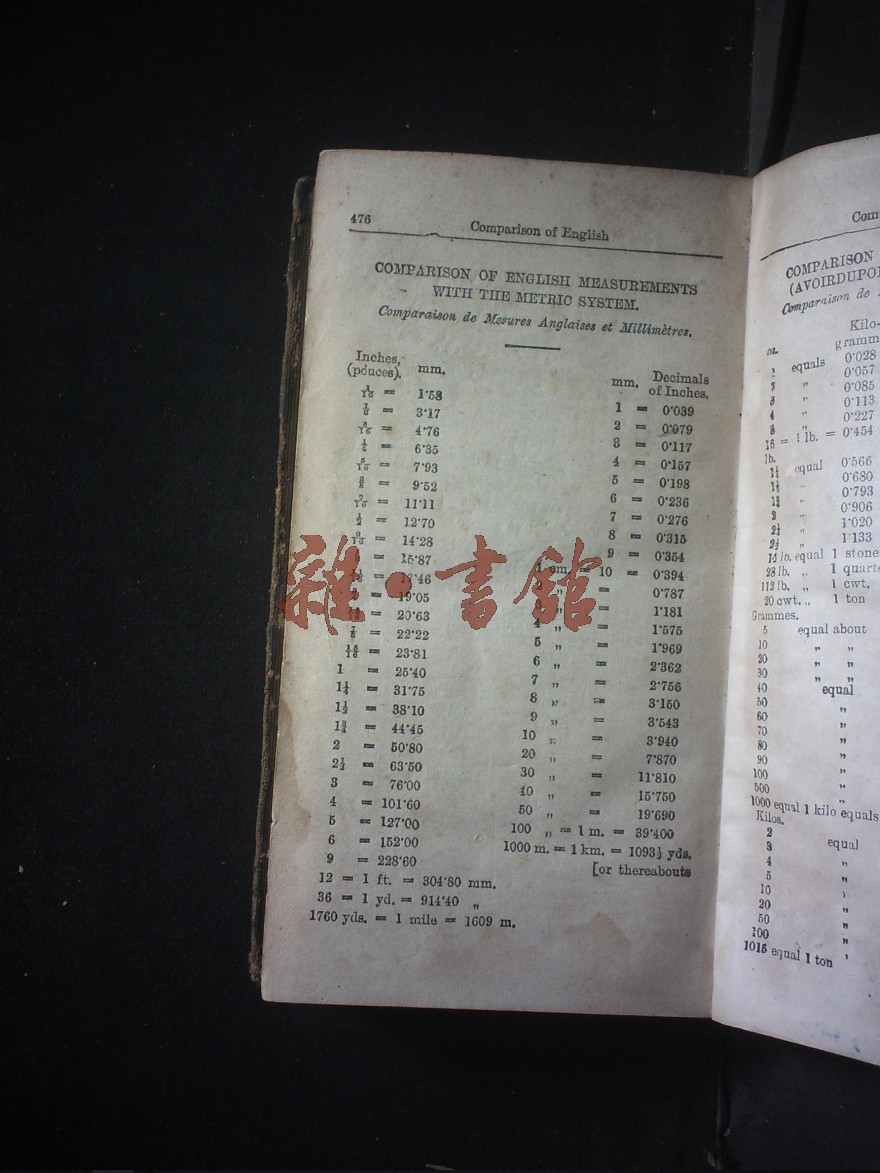 476
Comparison of English
COMPARISON OF ENGLISH MEASUREMENTS
WITH THE METRIC SYSTEM.
Comparaison de Mesures Anglaises et Millimètres.
Inches, (pouces). mm.
1/16 = 1·58
1/8 = 3·17
3/16 = 4·76
1/4 = 6·35
5/16 = 7·93
3/8 = 9·52
7/16 = 11·11
1/2 = 12·70
9/16 = 14·28
= 15·87
= 17·46
= 19·05
= 20·63
7/8 = 22·22
15/16 = 23·81
1 = 25·40
1¼ = 31·75
1½ = 38·10
1¾ = 44·45
2 = 50·80
2½ = 63·50
3 = 76·00
4 = 101·60
5 = 127·00
6 = 152·00
9 = 228·60
12 = 1 ft. = 304·80 mm.
36 = 1 yd. = 914·40 „
1760 yds. = 1 mile = 1609 m.
mm. Decimals of Inches.
1 = 0·039
2 = 0·079
3 = 0·117
4 = 0·157
5 = 0·198
6 = 0·236
7 = 0·276
8 = 0·315
9 = 0·354
1 cm. = 10 = 0·394
„ = 0·787
„ = 1·181
4 „ = 1·575
5 „ = 1·969
6 „ = 2·362
7 „ = 2·756
8 „ = 3·150
9 „ = 3·543
10 „ = 3·940
20 „ = 7·870
30 „ = 11·810
40 „ = 15·750
50 „ = 19·690
100 „ = 1 m. = 39·400
1000 m. = 1 km. = 1093⅓ yds.
[or thereabouts
雜·書館
COMPARISON
Comparaison de
oz.
1 equals 0·028
2 „ 0·057
3 „ 0·085
4 „ 0·113
8 „ 0·227
16 = 1 lb. = 0·454
lb.
equal 0·566
0·680
0·793
2 0·906
2¼ „ 1·020
2½ „ 1·133
14 lb. equal 1 stone
28 lb. „ 1
112 lb. „ 1 cwt.
20 cwt. „ 1 ton
Grammes.
5 equal about
10 „ „
20 „ „
30 „ „
40 equal
50 „
60 „
70 „
80 „
90 „
100 „
500 „
1000 equal 1 kilo equals
Kilos.
2
3 equal
4 „
5 „
10 „
20 „
50 „
100 „
1015 equal 1 ton